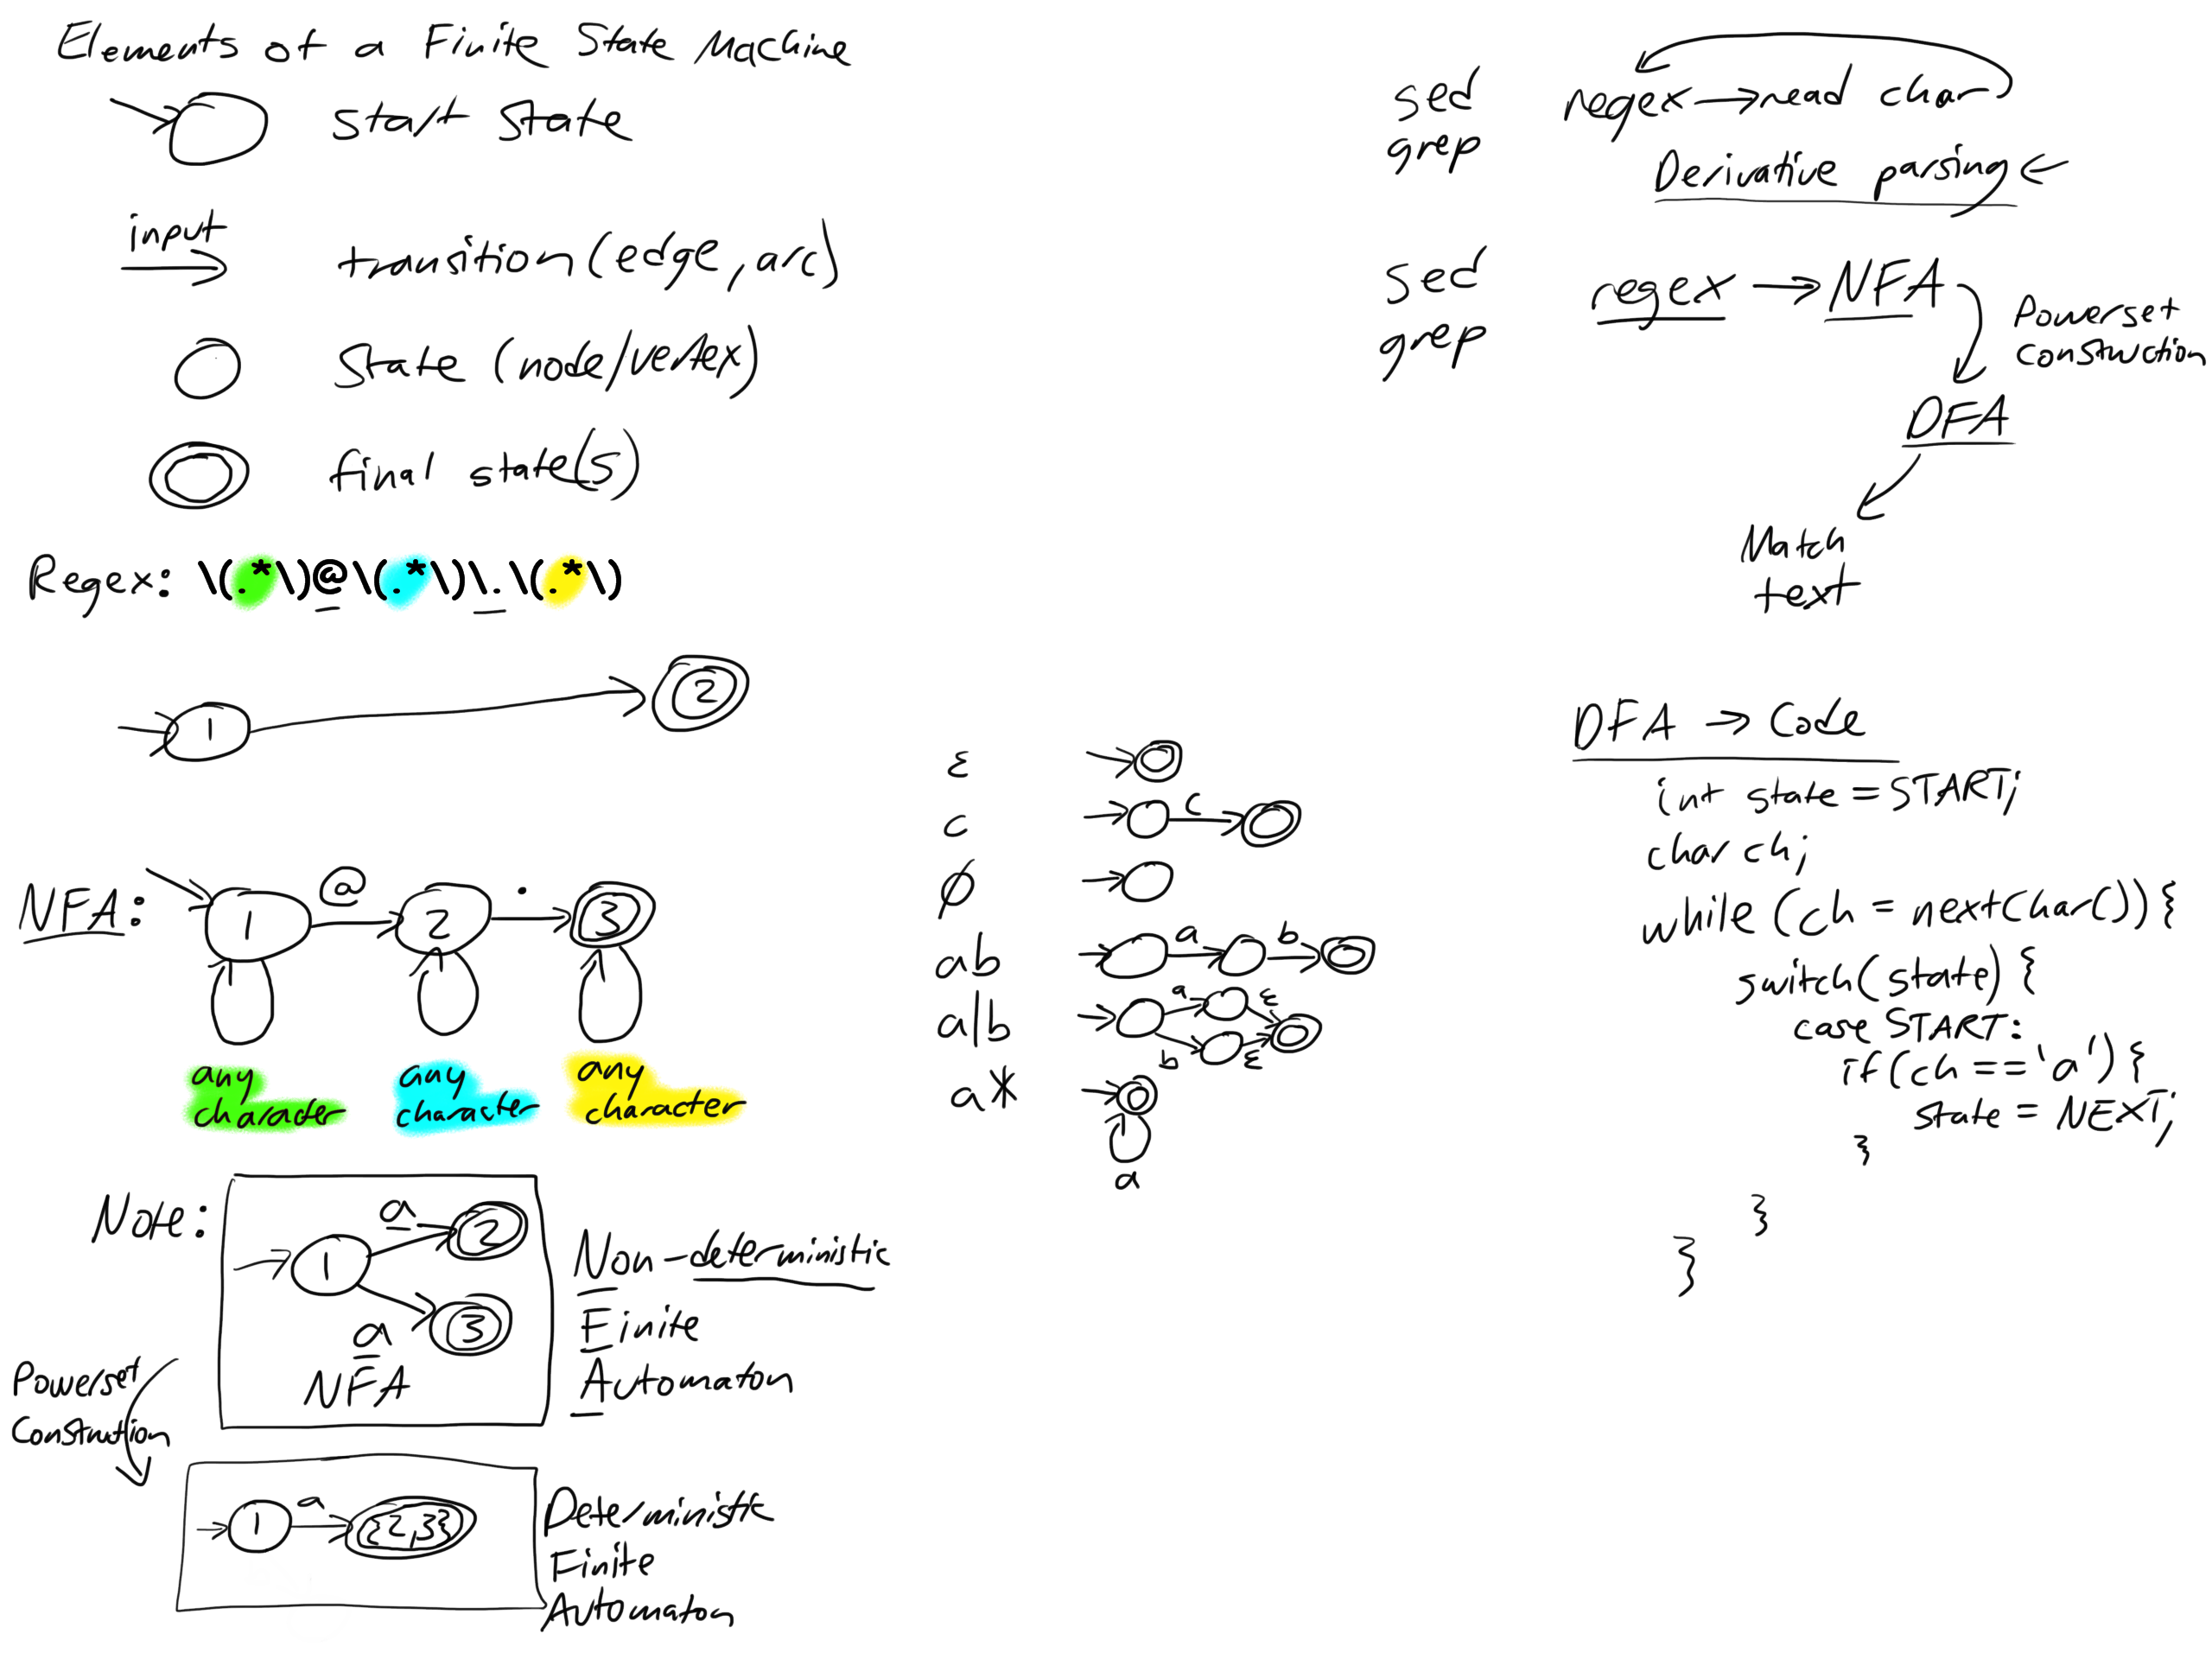 Elements of a Finite State Machine
start state
input
transition (edge, arc)
state (node/vertex)
final state(s)
Regex: \(.*\)@\(.*\)\.\(.*\)
1
2
NFA:
@
.
1
2
3
any
character
any
character
any
character
Note:
a
1
2
3
a
NFA
Non-deterministic
Finite
Automaton
Powerset
Construction
1
a
{2,3}
Deterministic
Finite
Automaton
ε
c
c
∅
ab
a
b
a|b
a
ε
b
ε
a*
a
sed
grep
regex → read char
Derivative parsing ←
sed
grep
regex → NFA
Powerset
construction
DFA
Match
text
DFA → Code
int state = START;
char ch;
while (ch = nextChar()) {
switch(state) {
case START:
if(ch == 'a') {
state = NEXT;
}
}
}